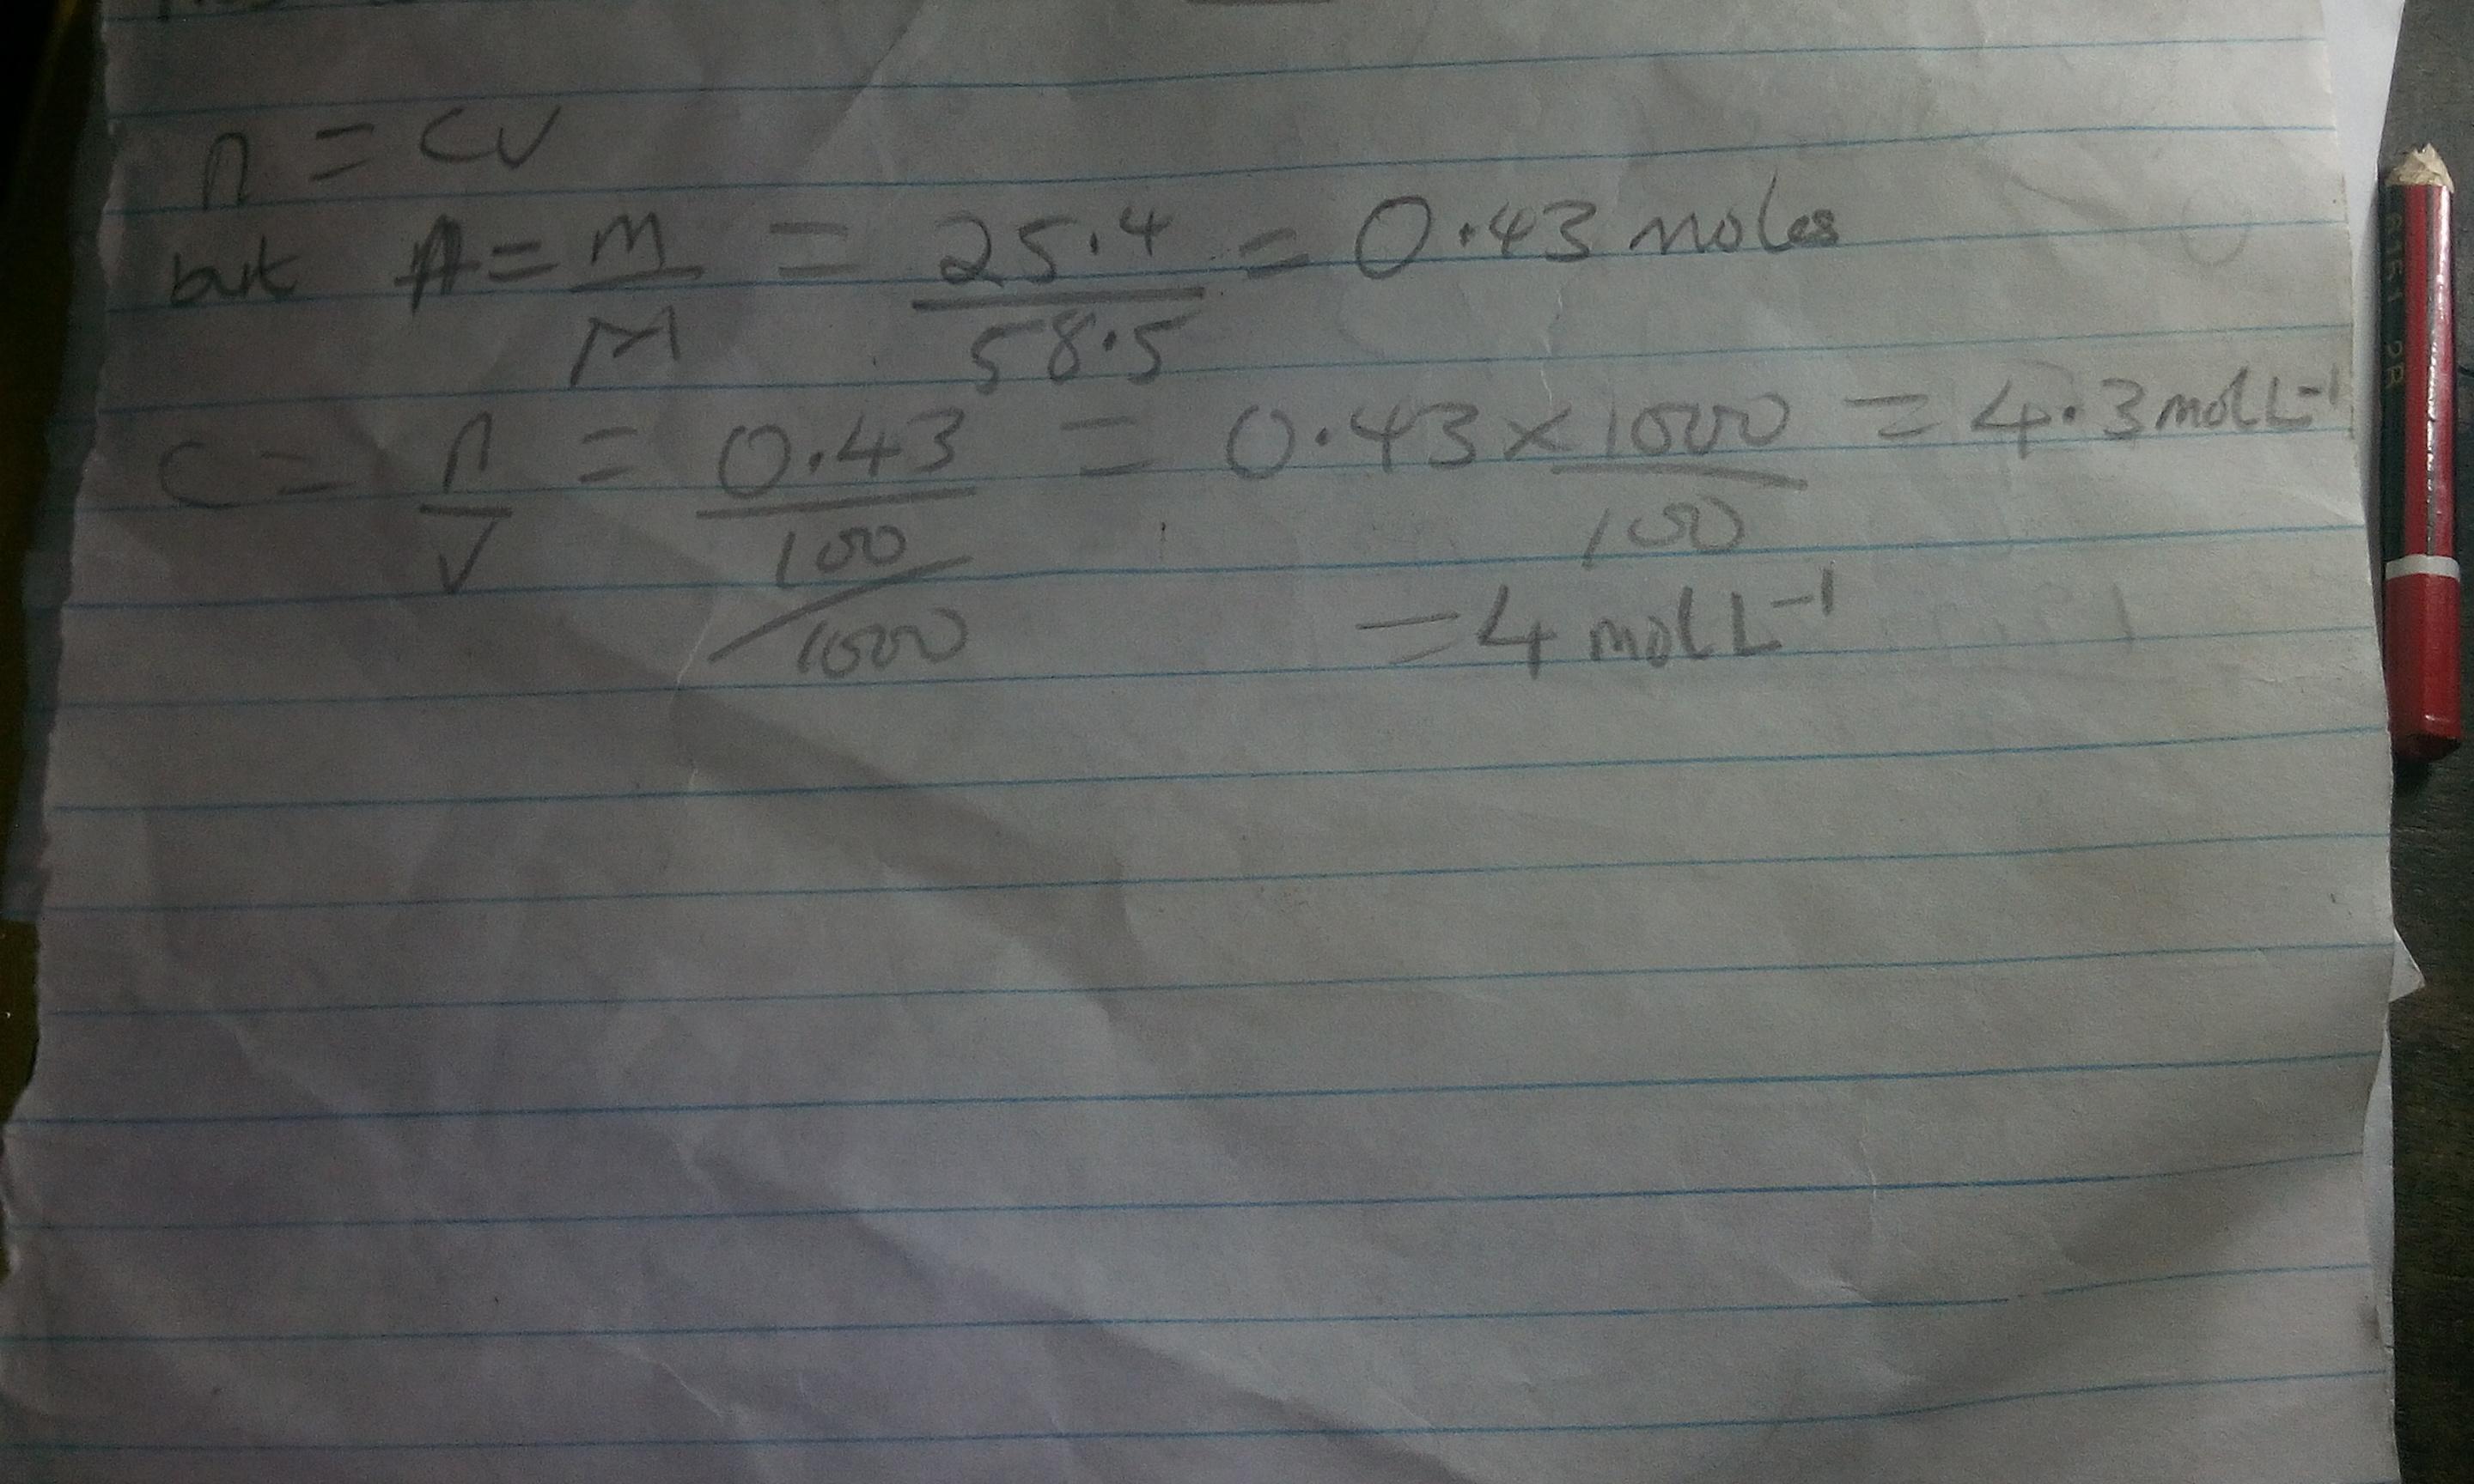 n = CV
but n = m/M = 25.4/58.5 = 0.43 moles
C = n/V = 0.43/100/1000 = 0.43 × 1000/100 = 4.3 mol L⁻¹
= 4 mol L⁻¹